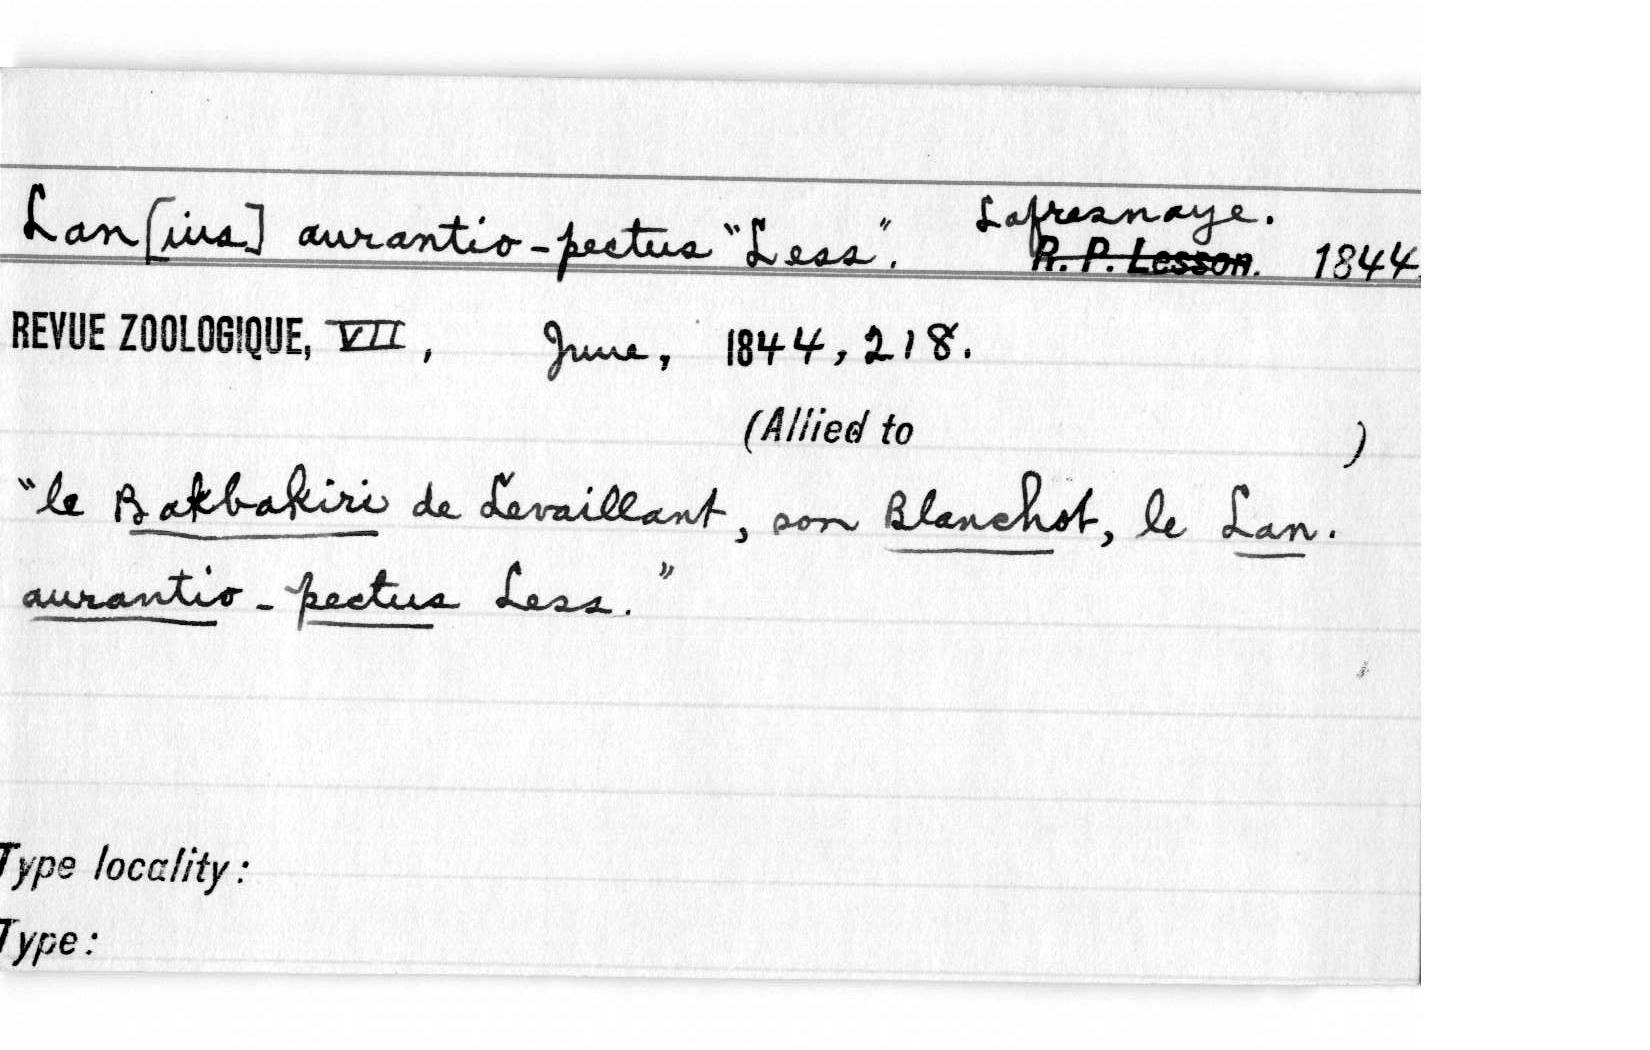 Lan[ius] aurantio-pectus "Less". Lafresnaye.
R. P. Lesson. 1844.
REVUE ZOOLOGIQUE, VII, June, 1844, 218.
(Allied to )
"le Bakbakiri de Levaillant, son Blanchot, le Lan.
aurantio-pectus Less."
Type locality:
Type: